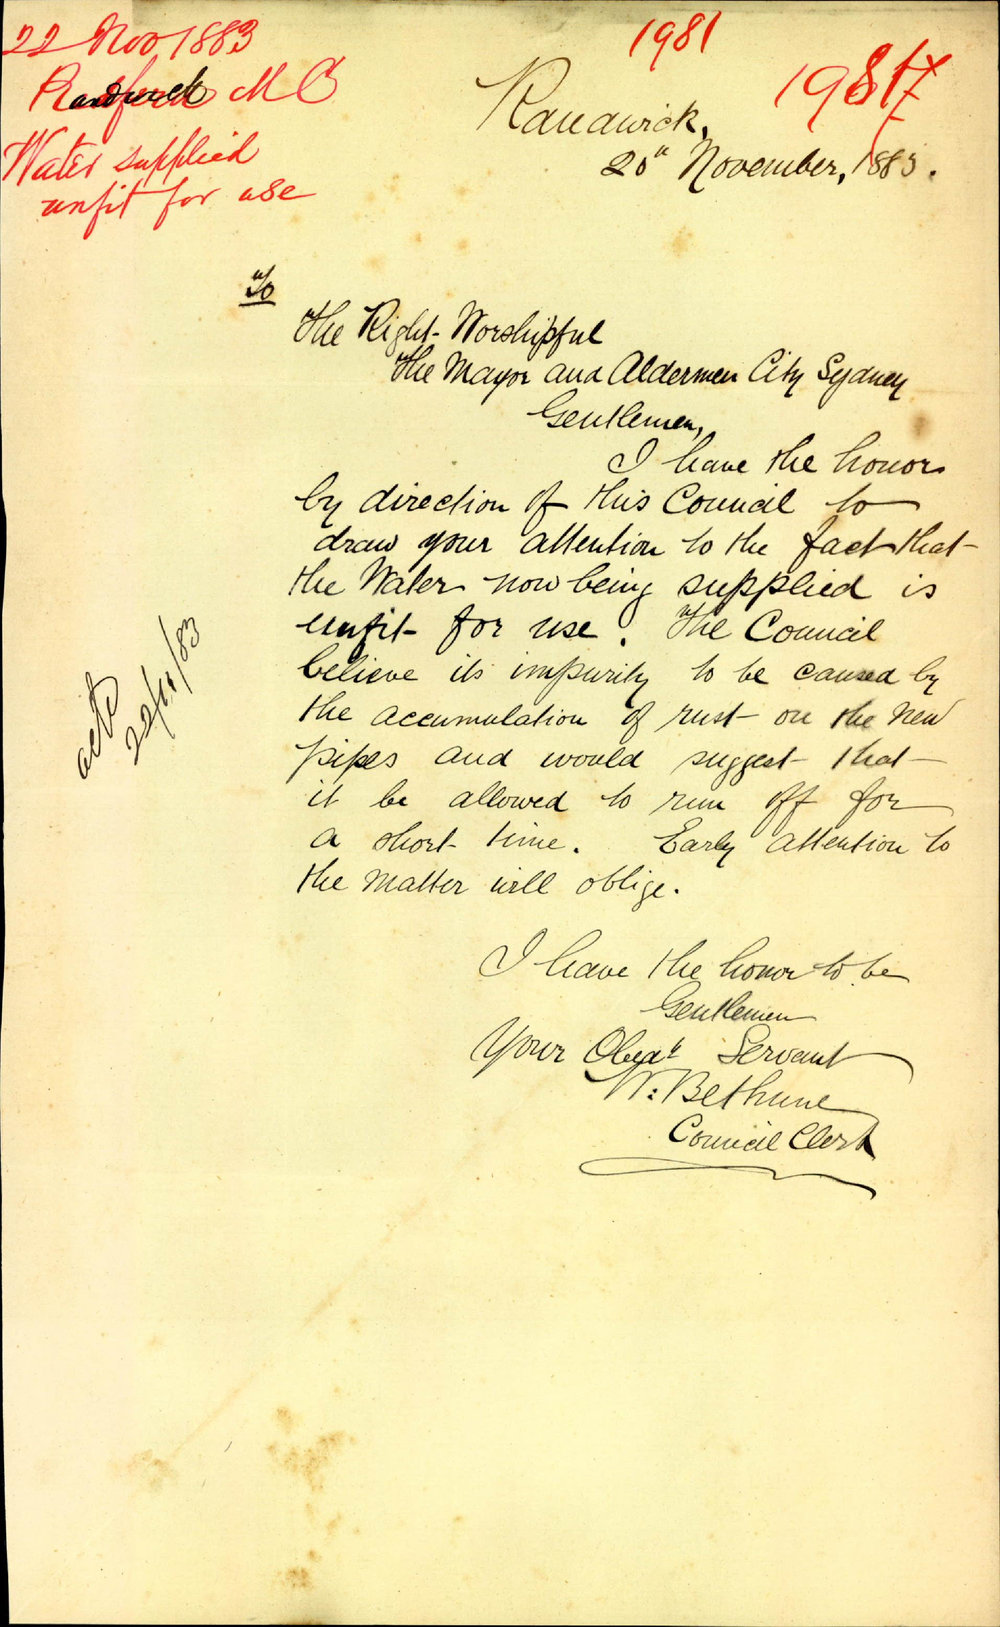 22 Nov 1883
Randwick M C
Water supplied
unfit for use
1981
Randwick,
20th November, 1883.
To
The Right Worshipful
The Mayor and Aldermen City Sydney
Gentlemen,
I have the honor
by direction of this Council to
draw your attention to the fact that
the Water now being supplied is
unfit for use. The Council
believe its impurity to be caused by
the accumulation of rust on the new
pipes and would suggest that
it be allowed to run off for
a short time. Early attention to
the matter will oblige.
I have the honor to be
Gentlemen
Your Obedt Servant
W: Bethune
Council Clerk
22/11/83